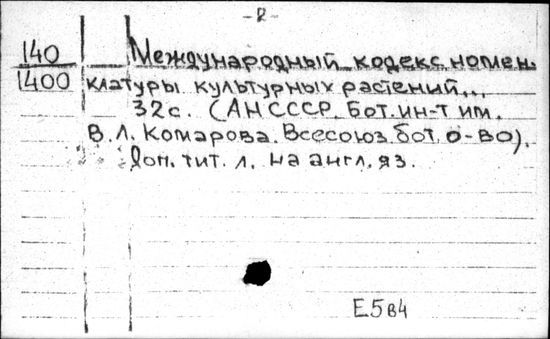 -2-
140
1400
Международный кодекс номен-
клатуры культурных растений...
32с. (АН СССР. Бот. ин-т им.
В.Л. Комарова. Всесоюз. бот. о-во).
Доп. тит. л. на англ. яз.
Е5в4